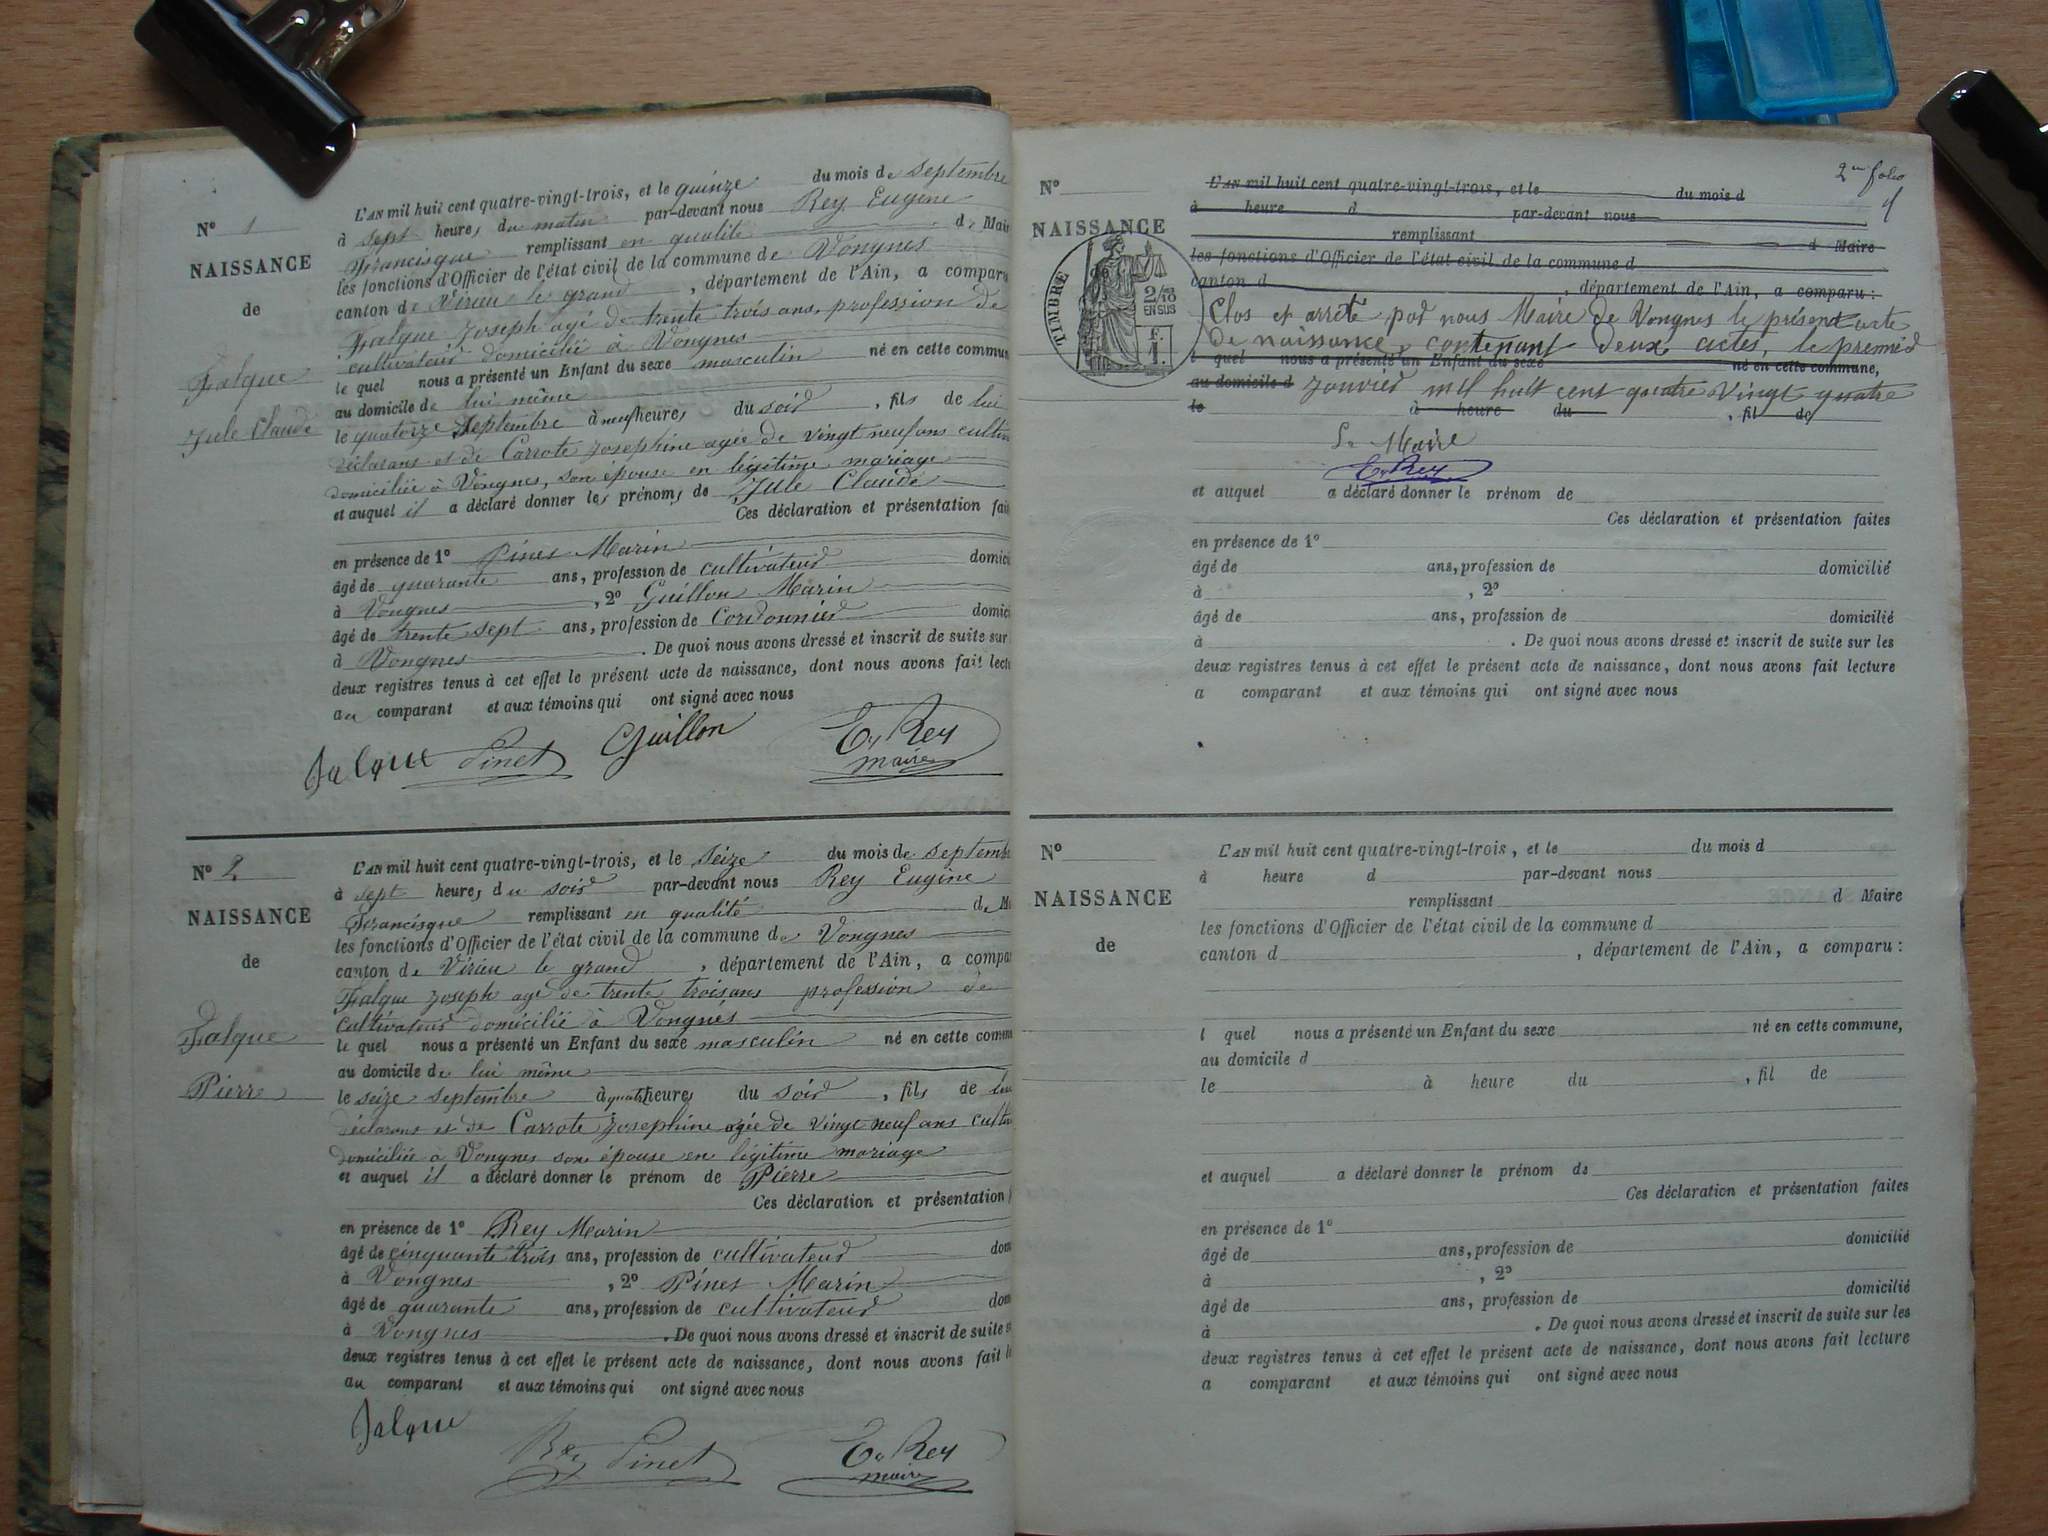 N° 1
NAISSANCE
de
Falque
Jule Claude
L'AN mil huit cent quatre-vingt-trois, et le quinze du mois de septembre
à sept heures du matin par-devant nous Rey Eugène
Francisque remplissant en qualité de Mair
les fonctions d'Officier de l'état civil de la commune de Vongnes
canton de Virieu le grand, département de l'Ain, a comparu
Falque Joseph agé de trente trois ans, profession de
cultivateur domicilié à Vongnes
le quel nous a présenté un Enfant du sexe masculin né en cette commun
au domicile de lui même
le quatorze Septembre à neuf heures du soir, fils de lui
déclarans et de Carrote Josephine agée de vingt neuf ans cultiv
domiciliée à Vongnes, son épouse en légitime mariage
et auquel il a déclaré donner les prénoms de Jule Claude
Ces déclaration et présentation fai
en présence de 1° Pinet Marin
âgé de quarante ans, profession de cultivateur domici
à Vongnes, 2° Guillon Marin
âgé de trente sept ans, profession de Cordonnier domici
à Vongnes. De quoi nous avons dressé et inscrit de suite sur
deux registres tenus à cet effet le présent acte de naissance, dont nous avons fait lectu
au comparant et aux témoins qui ont signé avec nous
Falque Pinet Guillon E. Rey
maire
N° 2
NAISSANCE
de
Falque
Pierre
L'AN mil huit cent quatre-vingt-trois, et le seize du mois de septemb
à sept heures du soir par-devant nous Rey Eugène
Francisque remplissant en qualité de M
les fonctions d'Officier de l'état civil de la commune de Vongnes
canton de Virieu le grand, département de l'Ain, a compar
Falque Joseph agé de trente trois ans profession de
cultivateur domicilié à Vongnes
le quel nous a présenté un Enfant du sexe masculin né en cette comm
au domicile de lui même
le seize septembre à quatre heures du soir, fils de lui
déclarans et de Carrote Josephine agée de vingt neuf ans cultiv
domiciliée à Vongnes son épouse en légitime mariage
et auquel il a déclaré donner le prénom de Pierre
Ces déclaration et présentation
en présence de 1° Rey Marin
âgé de cinquante trois ans, profession de cultivateur dom
à Vongnes, 2° Pinet Marin
âgé de quarante ans, profession de cultivateur dom
à Vongnes. De quoi nous avons dressé et inscrit de suite s
deux registres tenus à cet effet le présent acte de naissance, dont nous avons fait l
au comparant et aux témoins qui ont signé avec nous
Falque
Rey Pinet E. Rey
maire
2me folio
N°
NAISSANCE
TIMBRE
2/10
EN SUS
1 F.
L'AN mil huit cent quatre-vingt-trois, et le du mois d
à heure d par-devant nous
remplissant d Maire
les fonctions d'Officier de l'état civil de la commune d
canton d , département de l'Ain, a comparu :
Clos et arrêté par nous Maire de Vongnes le présent acte
de naissance, contenant deux actes, le premier
l quel nous a présenté un Enfant du sexe né en cette commune,
au domicile d janvier mil huit cent quatre vingt quatre
le à heure du , fil de
Le Maire
E. Rey
et auquel a déclaré donner le prénom de
Ces déclaration et présentation faites
en présence de 1°
âgé de ans, profession de domicilié
à , 2°
âgé de ans, profession de domicilié
à . De quoi nous avons dressé et inscrit de suite sur les
deux registres tenus à cet effet le présent acte de naissance, dont nous avons fait lecture
a comparant et aux témoins qui ont signé avec nous
N°
NAISSANCE
de
L'AN mil huit cent quatre-vingt-trois, et le du mois d
à heure d par-devant nous
remplissant d Maire
les fonctions d'Officier de l'état civil de la commune d
canton d , département de l'Ain, a comparu :
l quel nous a présenté un Enfant du sexe né en cette commune,
au domicile d
le à heure du , fil de
et auquel a déclaré donner le prénom de
Ces déclaration et présentation faites
en présence de 1°
âgé de ans, profession de domicilié
à , 2°
âgé de ans, profession de domicilié
à . De quoi nous avons dressé et inscrit de suite sur les
deux registres tenus à cet effet le présent acte de naissance, dont nous avons fait lecture
a comparant et aux témoins qui ont signé avec nous